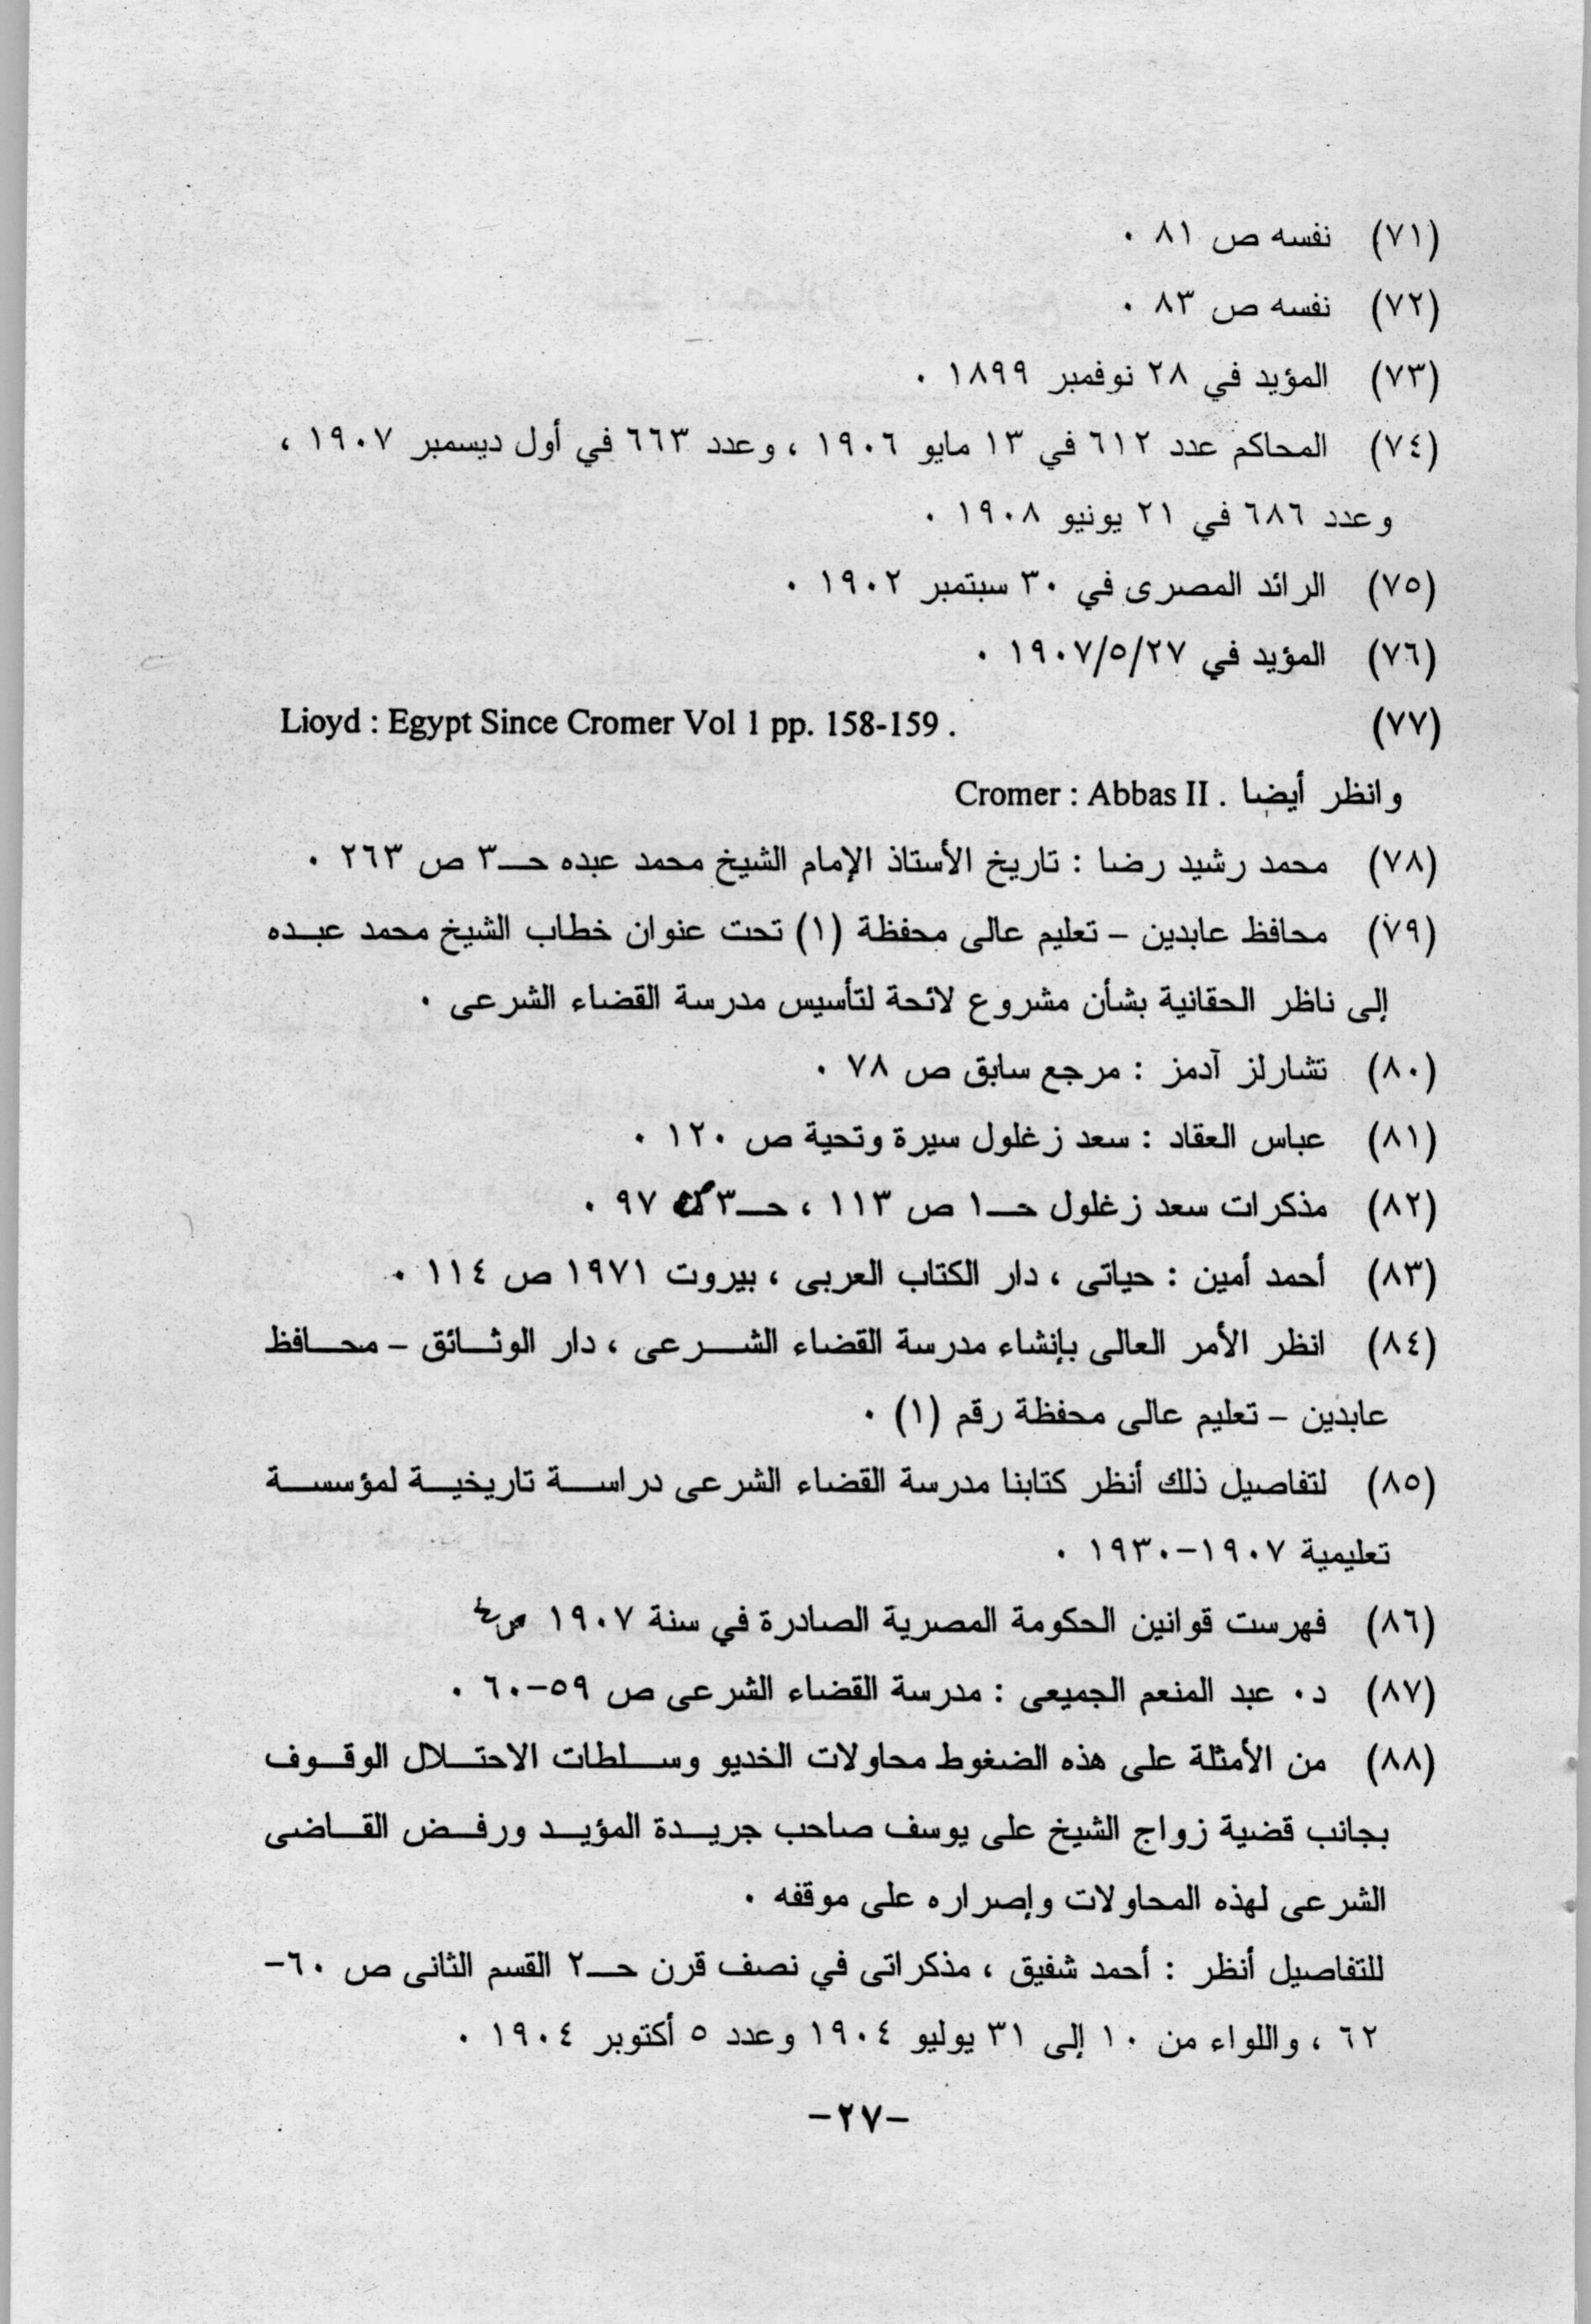 (٧١) نفسه ص ٨١ .
(٧٢) نفسه ص ٨٣ .
(٧٣) المؤيد في ٢٨ نوفمبر ١٨٩٩ .
(٧٤) المحاكم عدد ٦١٢ في ١٣ مايو ١٩٠٦ ، وعدد ٦٦٣ في أول ديسمبر ١٩٠٧ ،
وعدد ٦٨٦ في ٢١ يونيو ١٩٠٨ .
(٧٥) الرائد المصرى في ٣٠ سبتمبر ١٩٠٢ .
(٧٦) المؤيد في ١٩٠٧/٥/٢٧ .
(٧٧) Lioyd : Egypt Since Cromer Vol 1 pp. 158-159 .
وانظر أيضا . Cromer : Abbas II
(٧٨) محمد رشيد رضا : تاريخ الأستاذ الإمام الشيخ محمد عبده حـ٣ ص ٢٦٣ .
(٧٩) محافظ عابدين – تعليم عالى محفظة (١) تحت عنوان خطاب الشيخ محمد عبده
إلى ناظر الحقانية بشأن مشروع لائحة لتأسيس مدرسة القضاء الشرعى .
(٨٠) تشارلز آدمز : مرجع سابق ص ٧٨ .
(٨١) عباس العقاد : سعد زغلول سيرة وتحية ص ١٢٠ .
(٨٢) مذكرات سعد زغلول حـ١ ص ١١٣ ، حـ٣ ص ٩٧ .
(٨٣) أحمد أمين : حياتى ، دار الكتاب العربى ، بيروت ١٩٧١ ص ١١٤ .
(٨٤) انظر الأمر العالى بإنشاء مدرسة القضاء الشرعى ، دار الوثائق – محافظ
عابدين – تعليم عالى محفظة رقم (١) .
(٨٥) لتفاصيل ذلك أنظر كتابنا مدرسة القضاء الشرعى دراسة تاريخية لمؤسسة
تعليمية ١٩٠٧–١٩٣٠ .
(٨٦) فهرست قوانين الحكومة المصرية الصادرة في سنة ١٩٠٧ ص٤
(٨٧) د. عبد المنعم الجميعى : مدرسة القضاء الشرعى ص ٥٩–٦٠ .
(٨٨) من الأمثلة على هذه الضغوط محاولات الخديو وسلطات الاحتلال الوقوف
بجانب قضية زواج الشيخ على يوسف صاحب جريدة المؤيد ورفض القاضى
الشرعى لهذه المحاولات وإصراره على موقفه .
للتفاصيل أنظر : أحمد شفيق ، مذكراتى في نصف قرن حـ٢ القسم الثانى ص ٦٠–
٦٢ ، واللواء من ١٠ إلى ٣١ يوليو ١٩٠٤ وعدد ٥ أكتوبر ١٩٠٤ .
–٢٧–